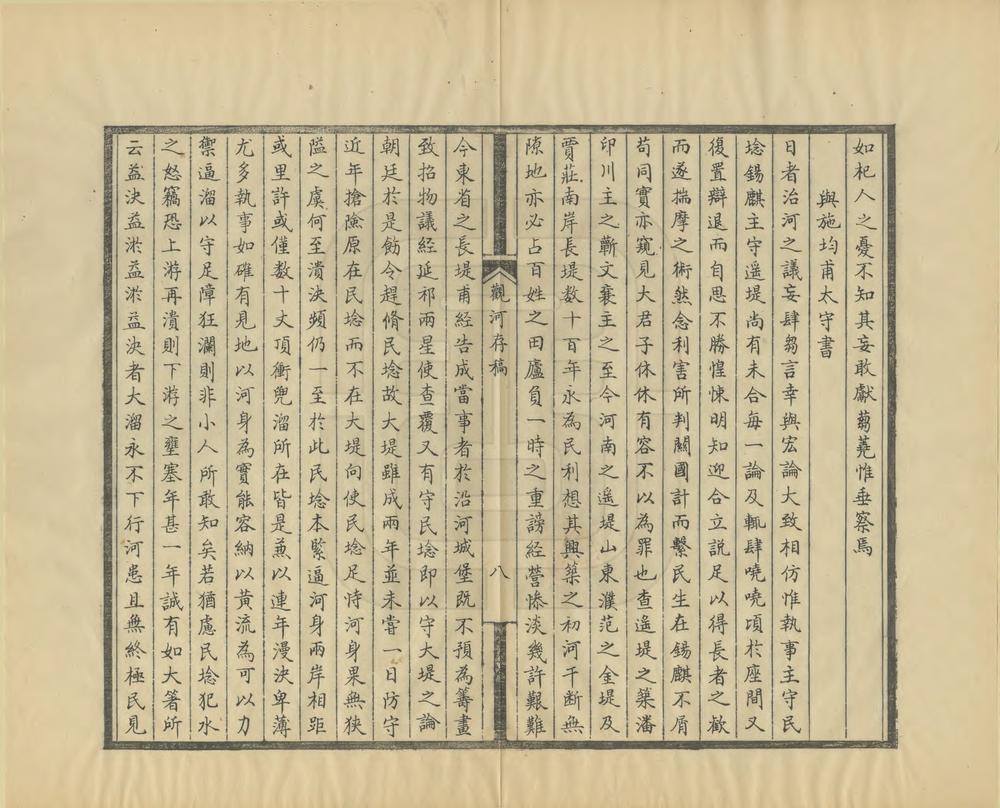 如杞人之憂不知其妄敢獻蒭蕘惟垂察焉
與施均甫太守書
日者治河之議妄肆芻言幸與宏論大致相仿惟執事主守民
埝錫麒主守遥堤尚有未合每一論及輒肆嘵嘵頃於座間又
復置辯退而自思不勝惶悚明知迎合立說足以得長者之歡
而遂揣摩之術然念利害所判關國計而繫民生在錫麒不屑
苟同實亦窺見大君子休休有容不以為罪也查遥堤之築潘
印川主之靳文襄主之至今河南之遥堤山東濮范之金堤及
賈莊南岸長堤數十百年永為民利想其興築之初河干斷無
隙地亦必占百姓之田廬負一時之重謗經營慘淡幾許艱難
觀河存稿
八
今東省之長堤甫經告成當事者於沿河城堡既不預為籌畫
致招物議經延祁兩星使查覆又有守民埝即以守大堤之論
朝廷於是飭令趕脩民埝故大堤雖成兩年並未嘗一日防守
近年搶險原在民埝而不在大堤向使民埝足恃河身果無狹
隘之虞何至潰決頻仍一至於此民埝本緊逼河身兩岸相距
或里許或僅數十丈頂衝兜溜所在皆是兼以連年漫決卑薄
尤多執事如確有見地以河身為實能容納以黃流為可以力
禦逼溜以守足障狂瀾則非小人所敢知矣若猶慮民埝犯水
之怒竊恐上游再潰則下游之壅塞年甚一年誠有如大箸所
云益決益淤益淤益決者大溜永不下行河患且無終極民見